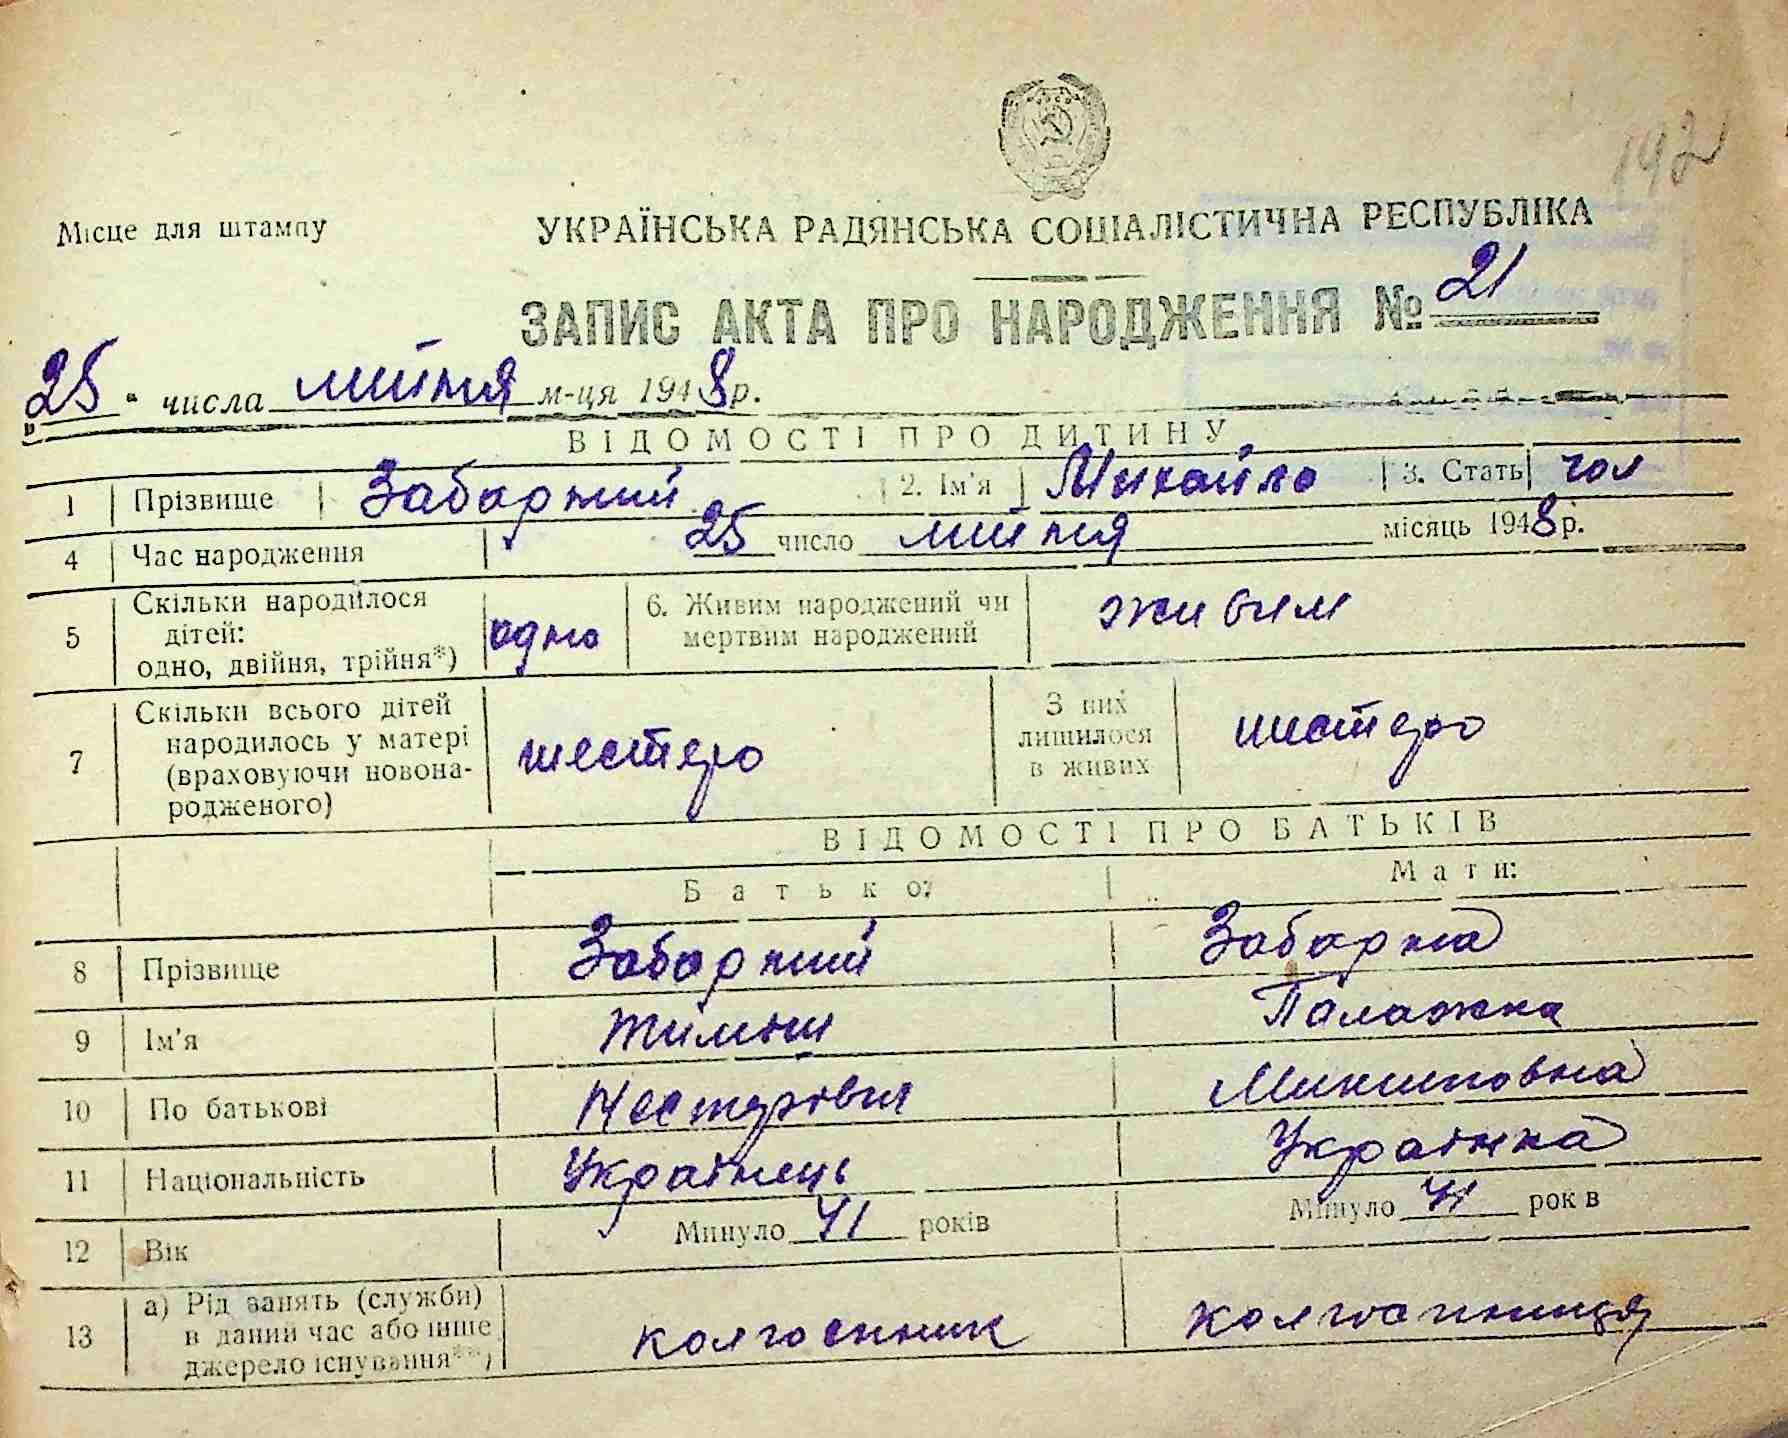 192
Місце для штампу
УКРАЇНСЬКА РАДЯНСЬКА СОЦІАЛІСТИЧНА РЕСПУБЛІКА
ЗАПИС АКТА ПРО НАРОДЖЕННЯ № 21
„25" числа липня м-ця 1948р.
ВІДОМОСТІ ПРО ДИТИНУ
1 Прізвище Забарний 2. Ім'я Михайло 3. Стать чол
4 Час народження 25 число липня місяць 1948р.
5 Скільки народилося
дітей:
одно, двійня, трійня*) одно
6. Живим народжений чи
мертвим народжений живим
7 Скільки всього дітей
народилось у матері
(враховуючи новона-
родженого) шестеро
З них
лишилося
в живих шестеро
ВІДОМОСТІ ПРО БАТЬКІВ
Батько: Мати:
8 Прізвище Забарний Забарна
9 Ім'я Тиміш Палажка
10 По батькові Нестерович
11 Національність Українець Українка
12 Вік Минуло 41 років Минуло 41 років
13 а) Рід занять (служби)
в даний час або інше
джерело існування**) колгоспник колгоспниця